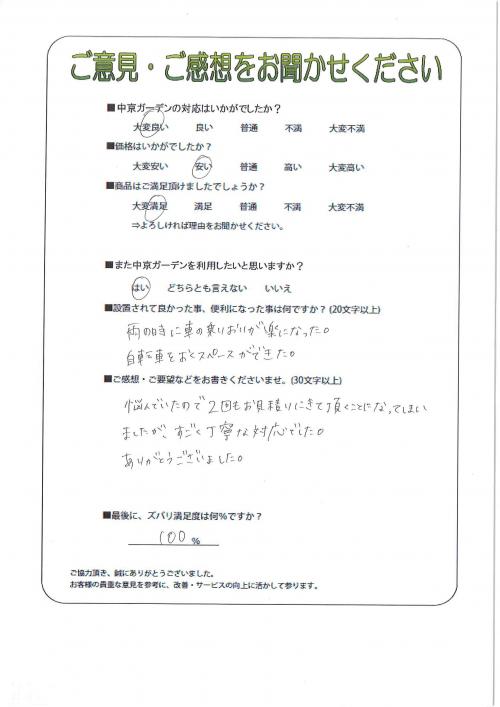 ご意見・ご感想をお聞かせください
■中京ガーデンの対応はいかがでしたか？
大変良い　良い　普通　不満　大変不満
■価格はいかがでしたか？
大変安い　安い　普通　高い　大変高い
■商品はご満足頂けましたでしょうか？
大変満足　満足　普通　不満　大変不満
⇒よろしければ理由をお聞かせください。
■また中京ガーデンを利用したいと思いますか？
はい　どちらとも言えない　いいえ
■設置されて良かった事、便利になった事は何ですか？(20文字以上)
雨の時に車の乗りおりが楽になった。
自転車をおくスペースができた。
■ご感想・ご要望などをお書きくださいませ。(30文字以上)
悩んでいたので2回もお見積りにきて頂くことになってしまい
ましたが、すごく丁寧な対応でした。
ありがとうございました。
■最後に、ズバリ満足度は何%ですか？
100 %
ご協力頂き、誠にありがとうございました。
お客様の貴重な意見を参考に、改善・サービスの向上に活かして参ります。